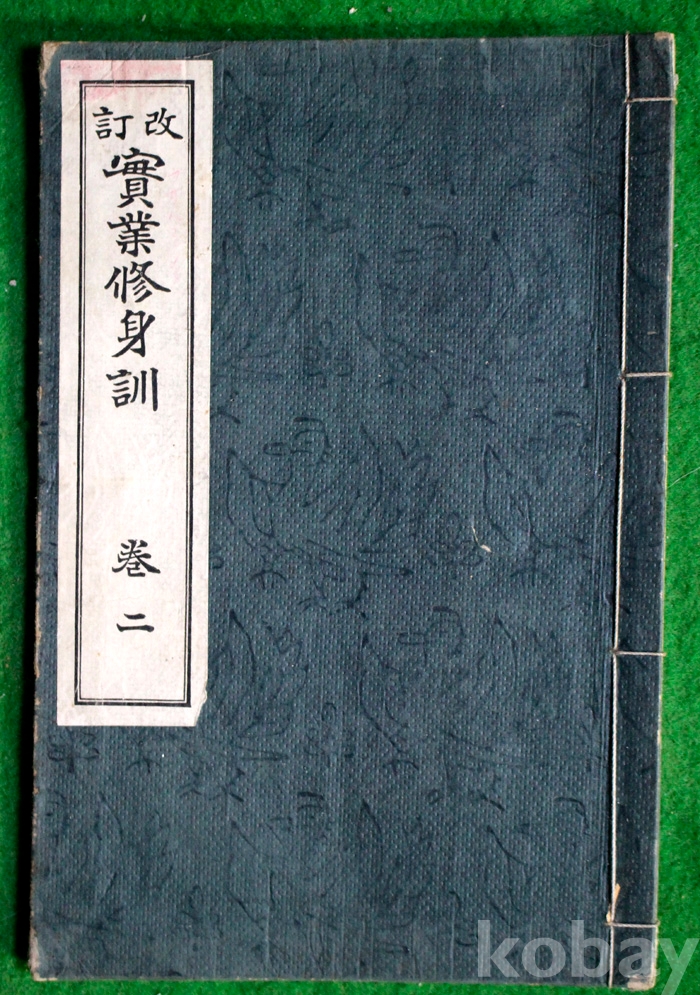 改訂
實業修身訓
卷二
kobay